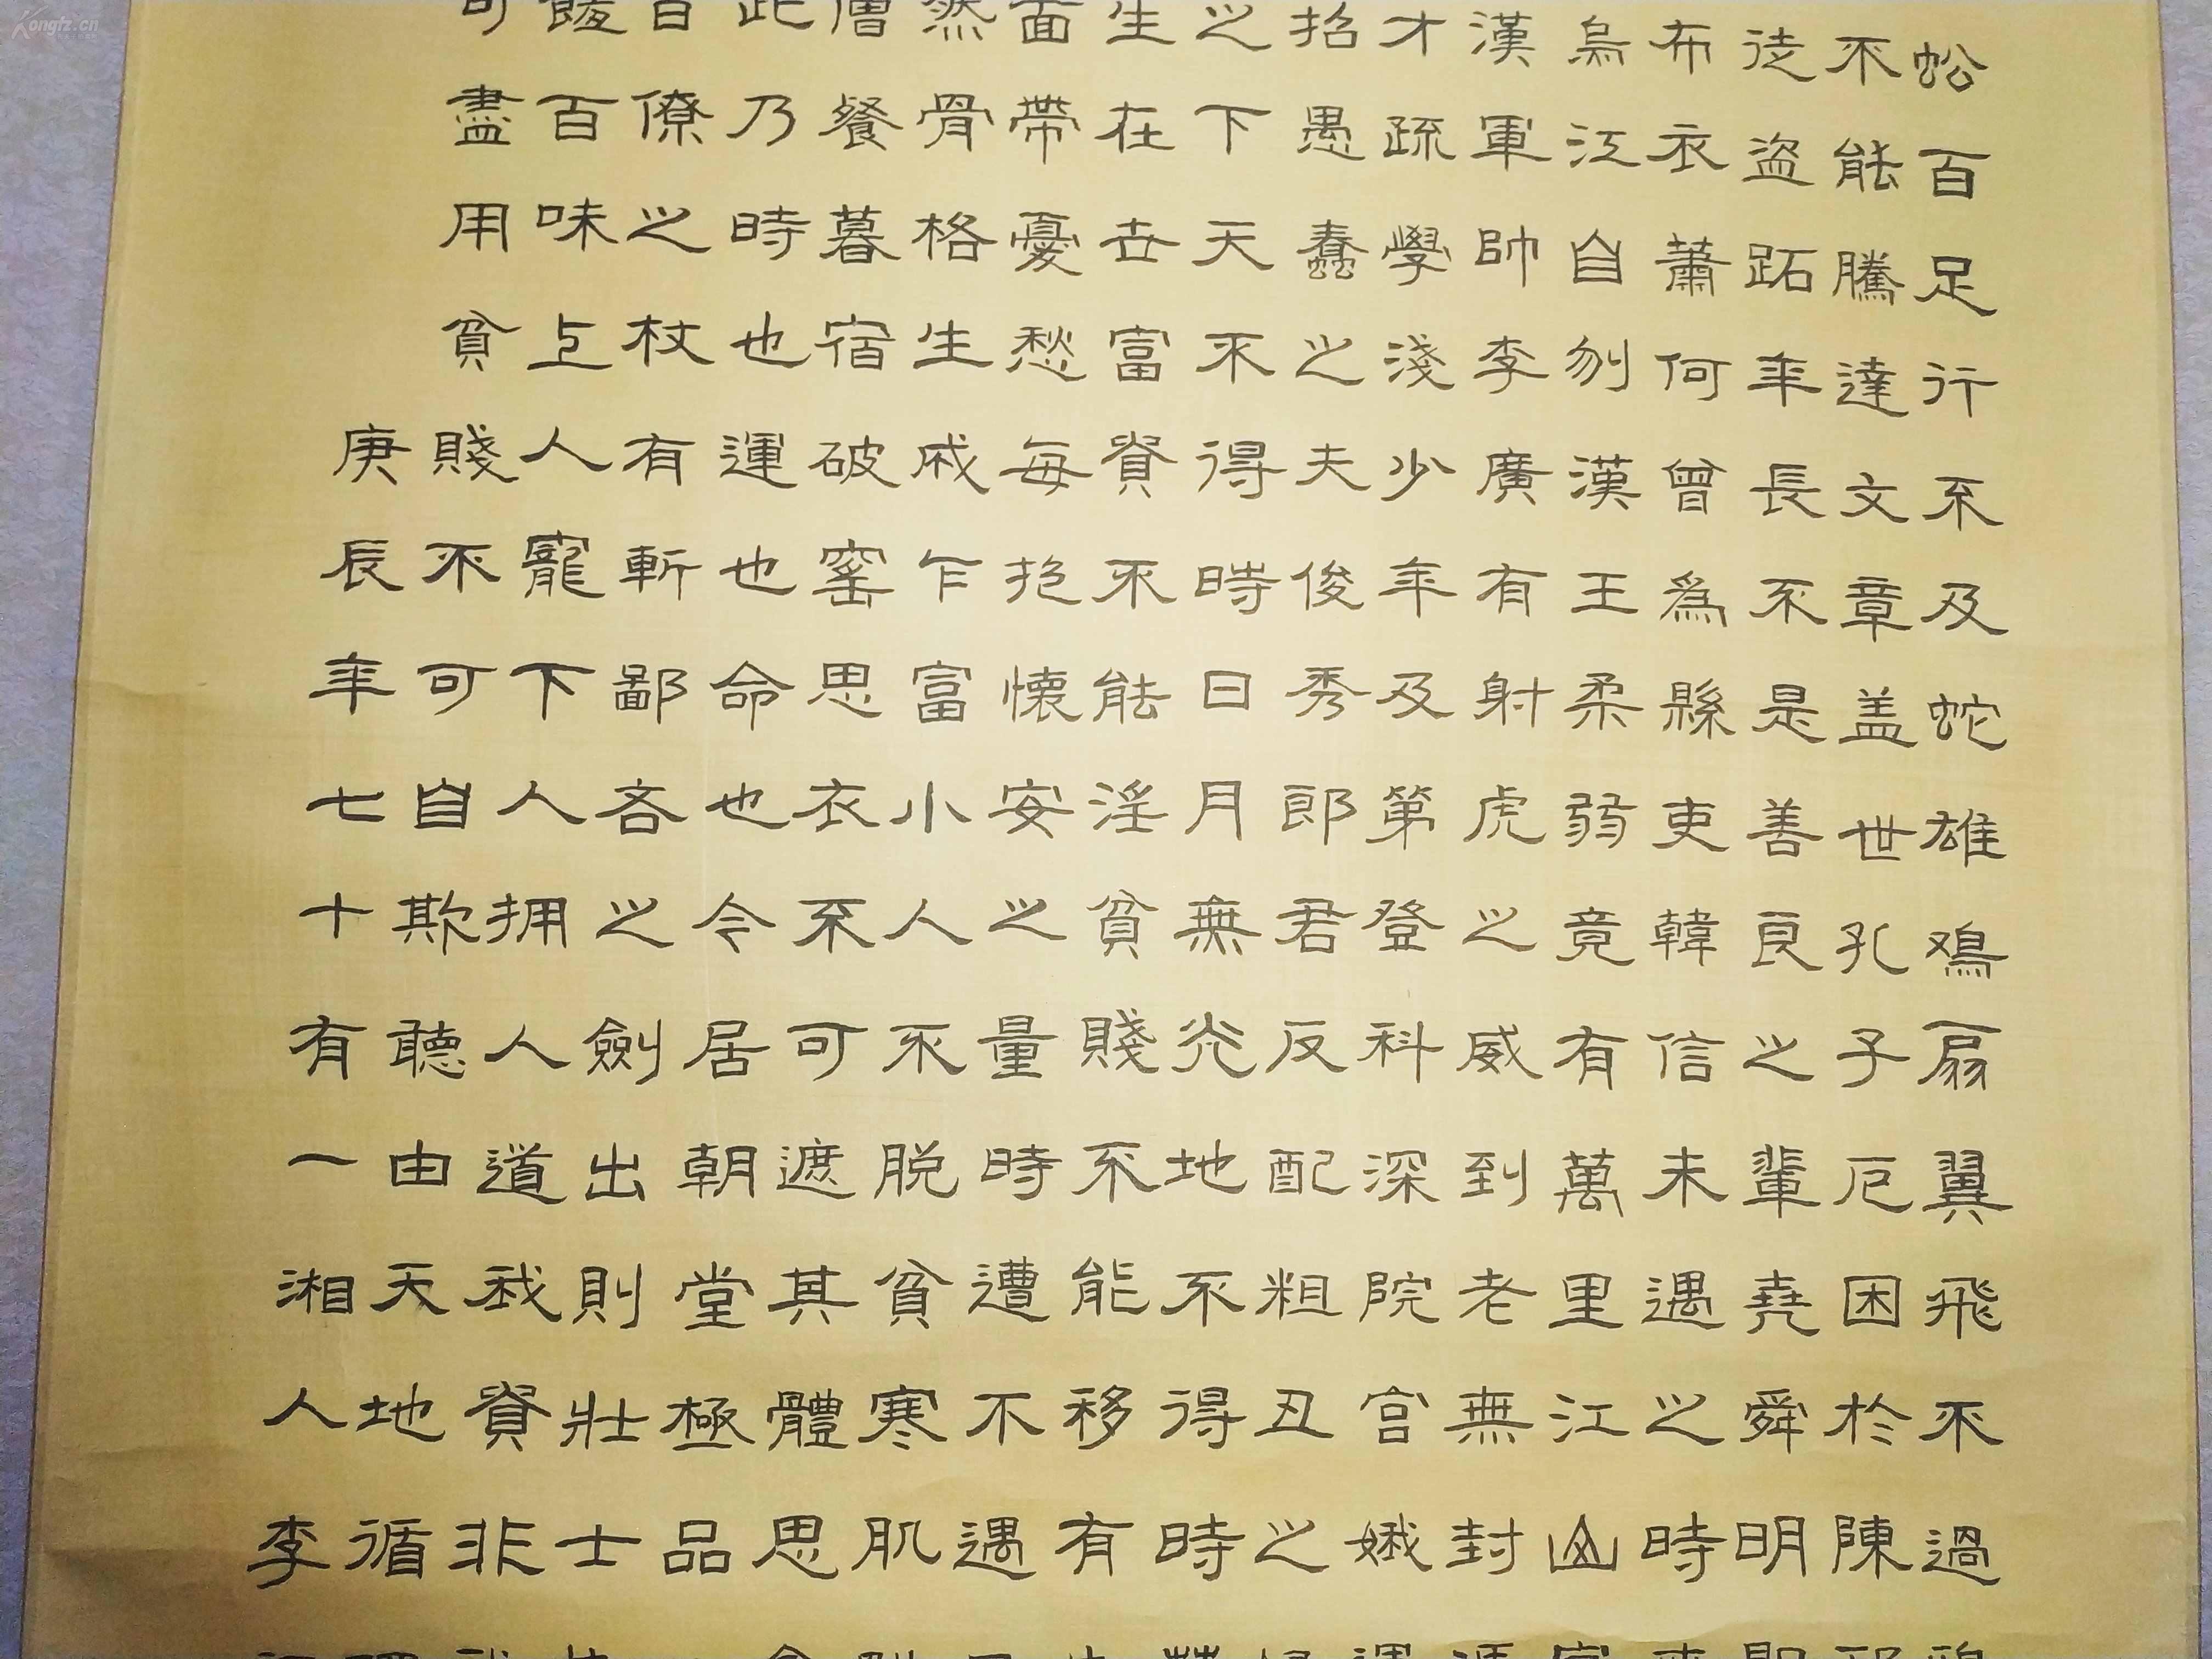 蚣百足行不及蛇雄鸡扇翼飛不過
不能騰達文章盖世孔子厄困於陳
徒盜跖年長不是善良之輩堯舜明
布衣蕭何曾為縣吏韓信未遇之時
烏江自刎漢王柔弱竟有萬里江山
漢軍帥李廣有射虎之威到老無封
才疏學淺少年及第登科深院宫娥
招愚蠢之夫俊秀郎君反配粗丑之
之下天不得時日月無光地不得時
生在世富貴不能淫貧賤不能移有
面帶憂愁每抱懷安之量時遭不遇
然骨格生成乍富小人不脱貧寒肌
僧餐暮宿破窑思衣不可遮其體思
此乃時也運也命也今居朝堂極品
百僚之杖有斬鄙吝之劍出則壯士
百味上人寵下人拥人道我貴非
可盡用貧賤不可自欺聽由天地循
庚辰年七十有一湘人李
Kongfz.cn